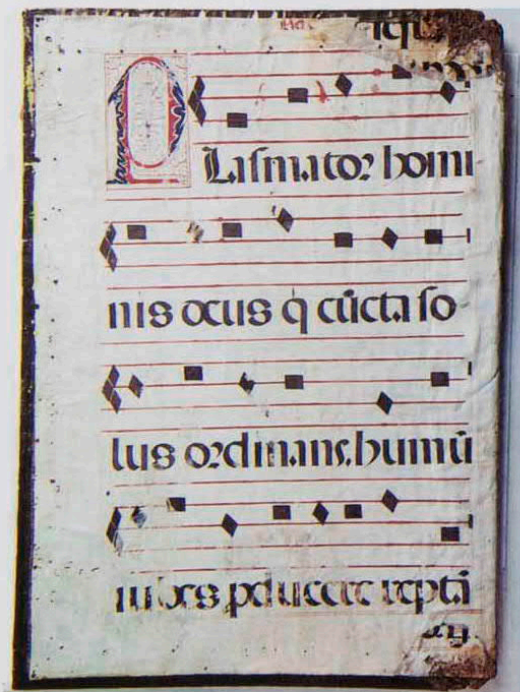 Plasmator homi
nis deus q̄ cūcta so
lus ordinans. humū
iubes ꝓducere rept̄a